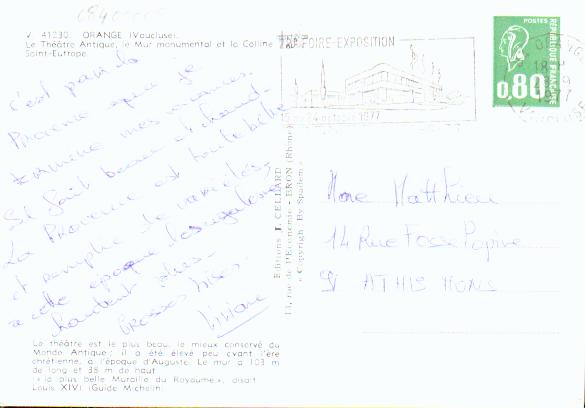 V. 41230. ORANGE (Vaucluse).
Le Théâtre Antique, le Mur monumental et la Colline
Saint-Eutrope.
C'est par la
Provence que je
termine mes vacances.
Il fait beau et chaud.
La Provence est toute belle
et remplie de
à cette époque les cigales
chantent plus.
Grosses bises.
Viviane
Le théâtre est le plus beau, le mieux conservé du
Monde Antique ; il a été élevé peu avant l'ère
chrétienne, à l'époque d'Auguste. Le mur a 103 m
de long et 38 m de haut
« la plus belle Muraille du Royaume », disait
Louis XIV) (Guide Michelin)
Editions J. CELLARD
11, rue de l'Economie - BRON (Rhône)
« Copyright By Spadem »
FOIRE-EXPOSITION
24 octobre 1977
POSTES
REPUBLIQUE FRANÇAISE
0,80
18
1977
Mme Matthieu
14 Rue Fosse Papive
91 ATHIS MONS